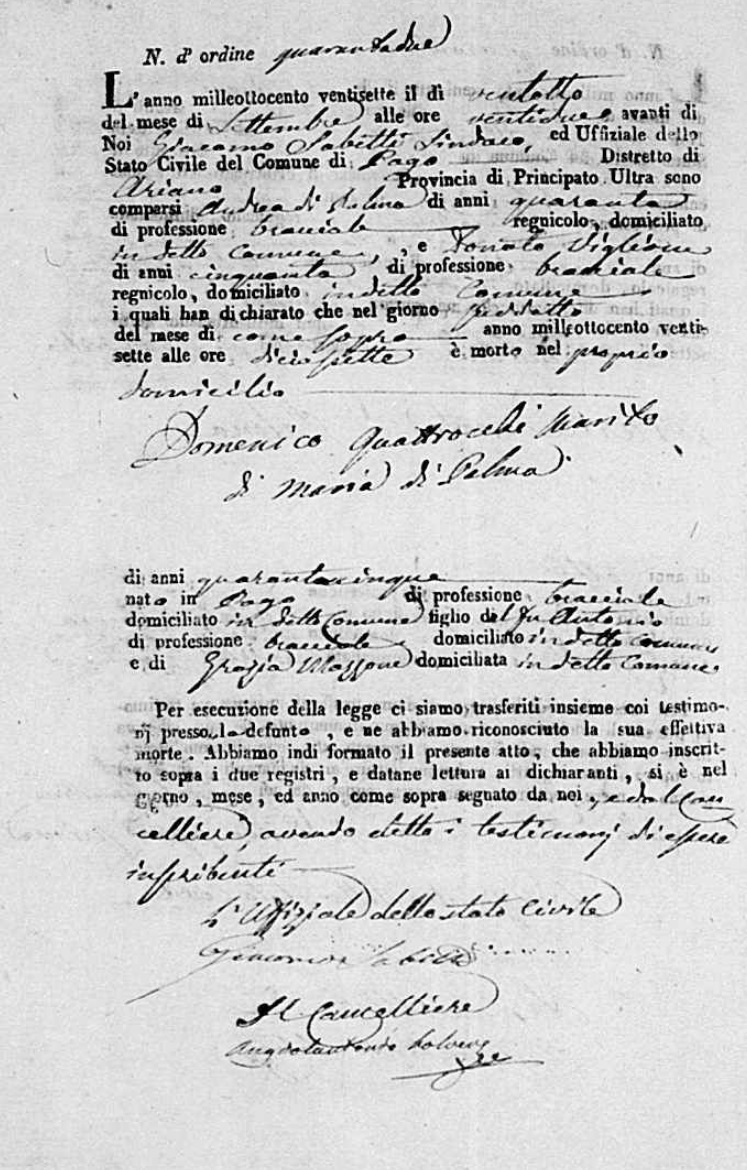 N. d' ordine quarantadue
L' anno milleottocento ventisette il dì ventotto
del mese di Settembre alle ore ventidue avanti di
Noi Giacomo Sabetti Sindaco, ed Uffiziale dello
Stato Civile del Comune di Pago Distretto di
Ariano Provincia di Principato Ultra sono
comparsi Andrea di Palma di anni quaranta
di professione bracciale regnicolo, domiciliato
in detto Comune, , e Donato Viglione
di anni cinquanta di professione bracciale
regnicolo, domiciliato in detto Comune
i quali han dichiarato che nel giorno suddetto
del mese di come sopra anno milleottocento venti-
sette alle ore diciasette è morto nel proprio
domicilio
Domenico Quattrocchi marito
di Maria di Palma
di anni quarantacinque
nato in Pago di professione bracciale
domiciliato in detto Comune figlio del fu Antonio
di professione bracciale domiciliato in detto Comune
e di Grazia Mazzone domiciliata in detto Comune
Per esecuzione della legge ci siamo trasferiti insieme coi testimo-
nj presso lo defunto, e ne abbiamo riconosciuto la sua effettiva
morte. Abbiamo indi formato il presente atto, che abbiamo inscrit-
to sopra i due registri, e datane lettura ai dichiaranti, si è nel
giorno, mese, ed anno come sopra segnato da noi, e dal Can
celliere, avendo detto i testimonj di essere
inscribenti
L' Uffiziale dello stato Civile
Giacomo Sabetti
Il Cancelliere
Angelantonio